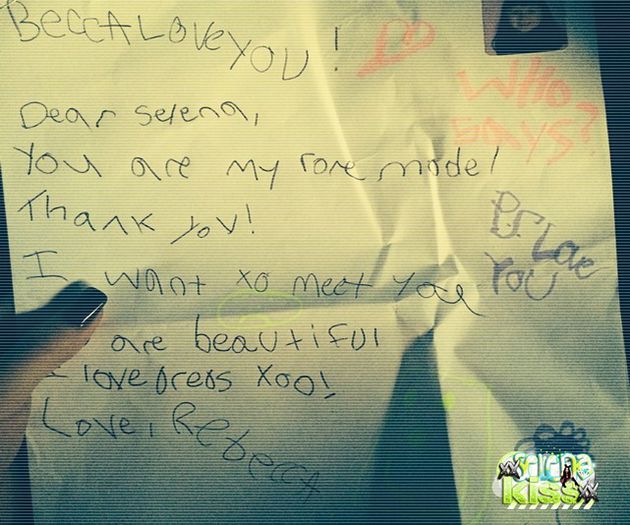 BECCA LOVE YOU!
WHO
SAYS?
Dear Selena,
You are my rore model
Thank you!
I want xo meet you
Love
YOU
are beautiful
love Xoo!
Love, Rebecc
selena
kiss